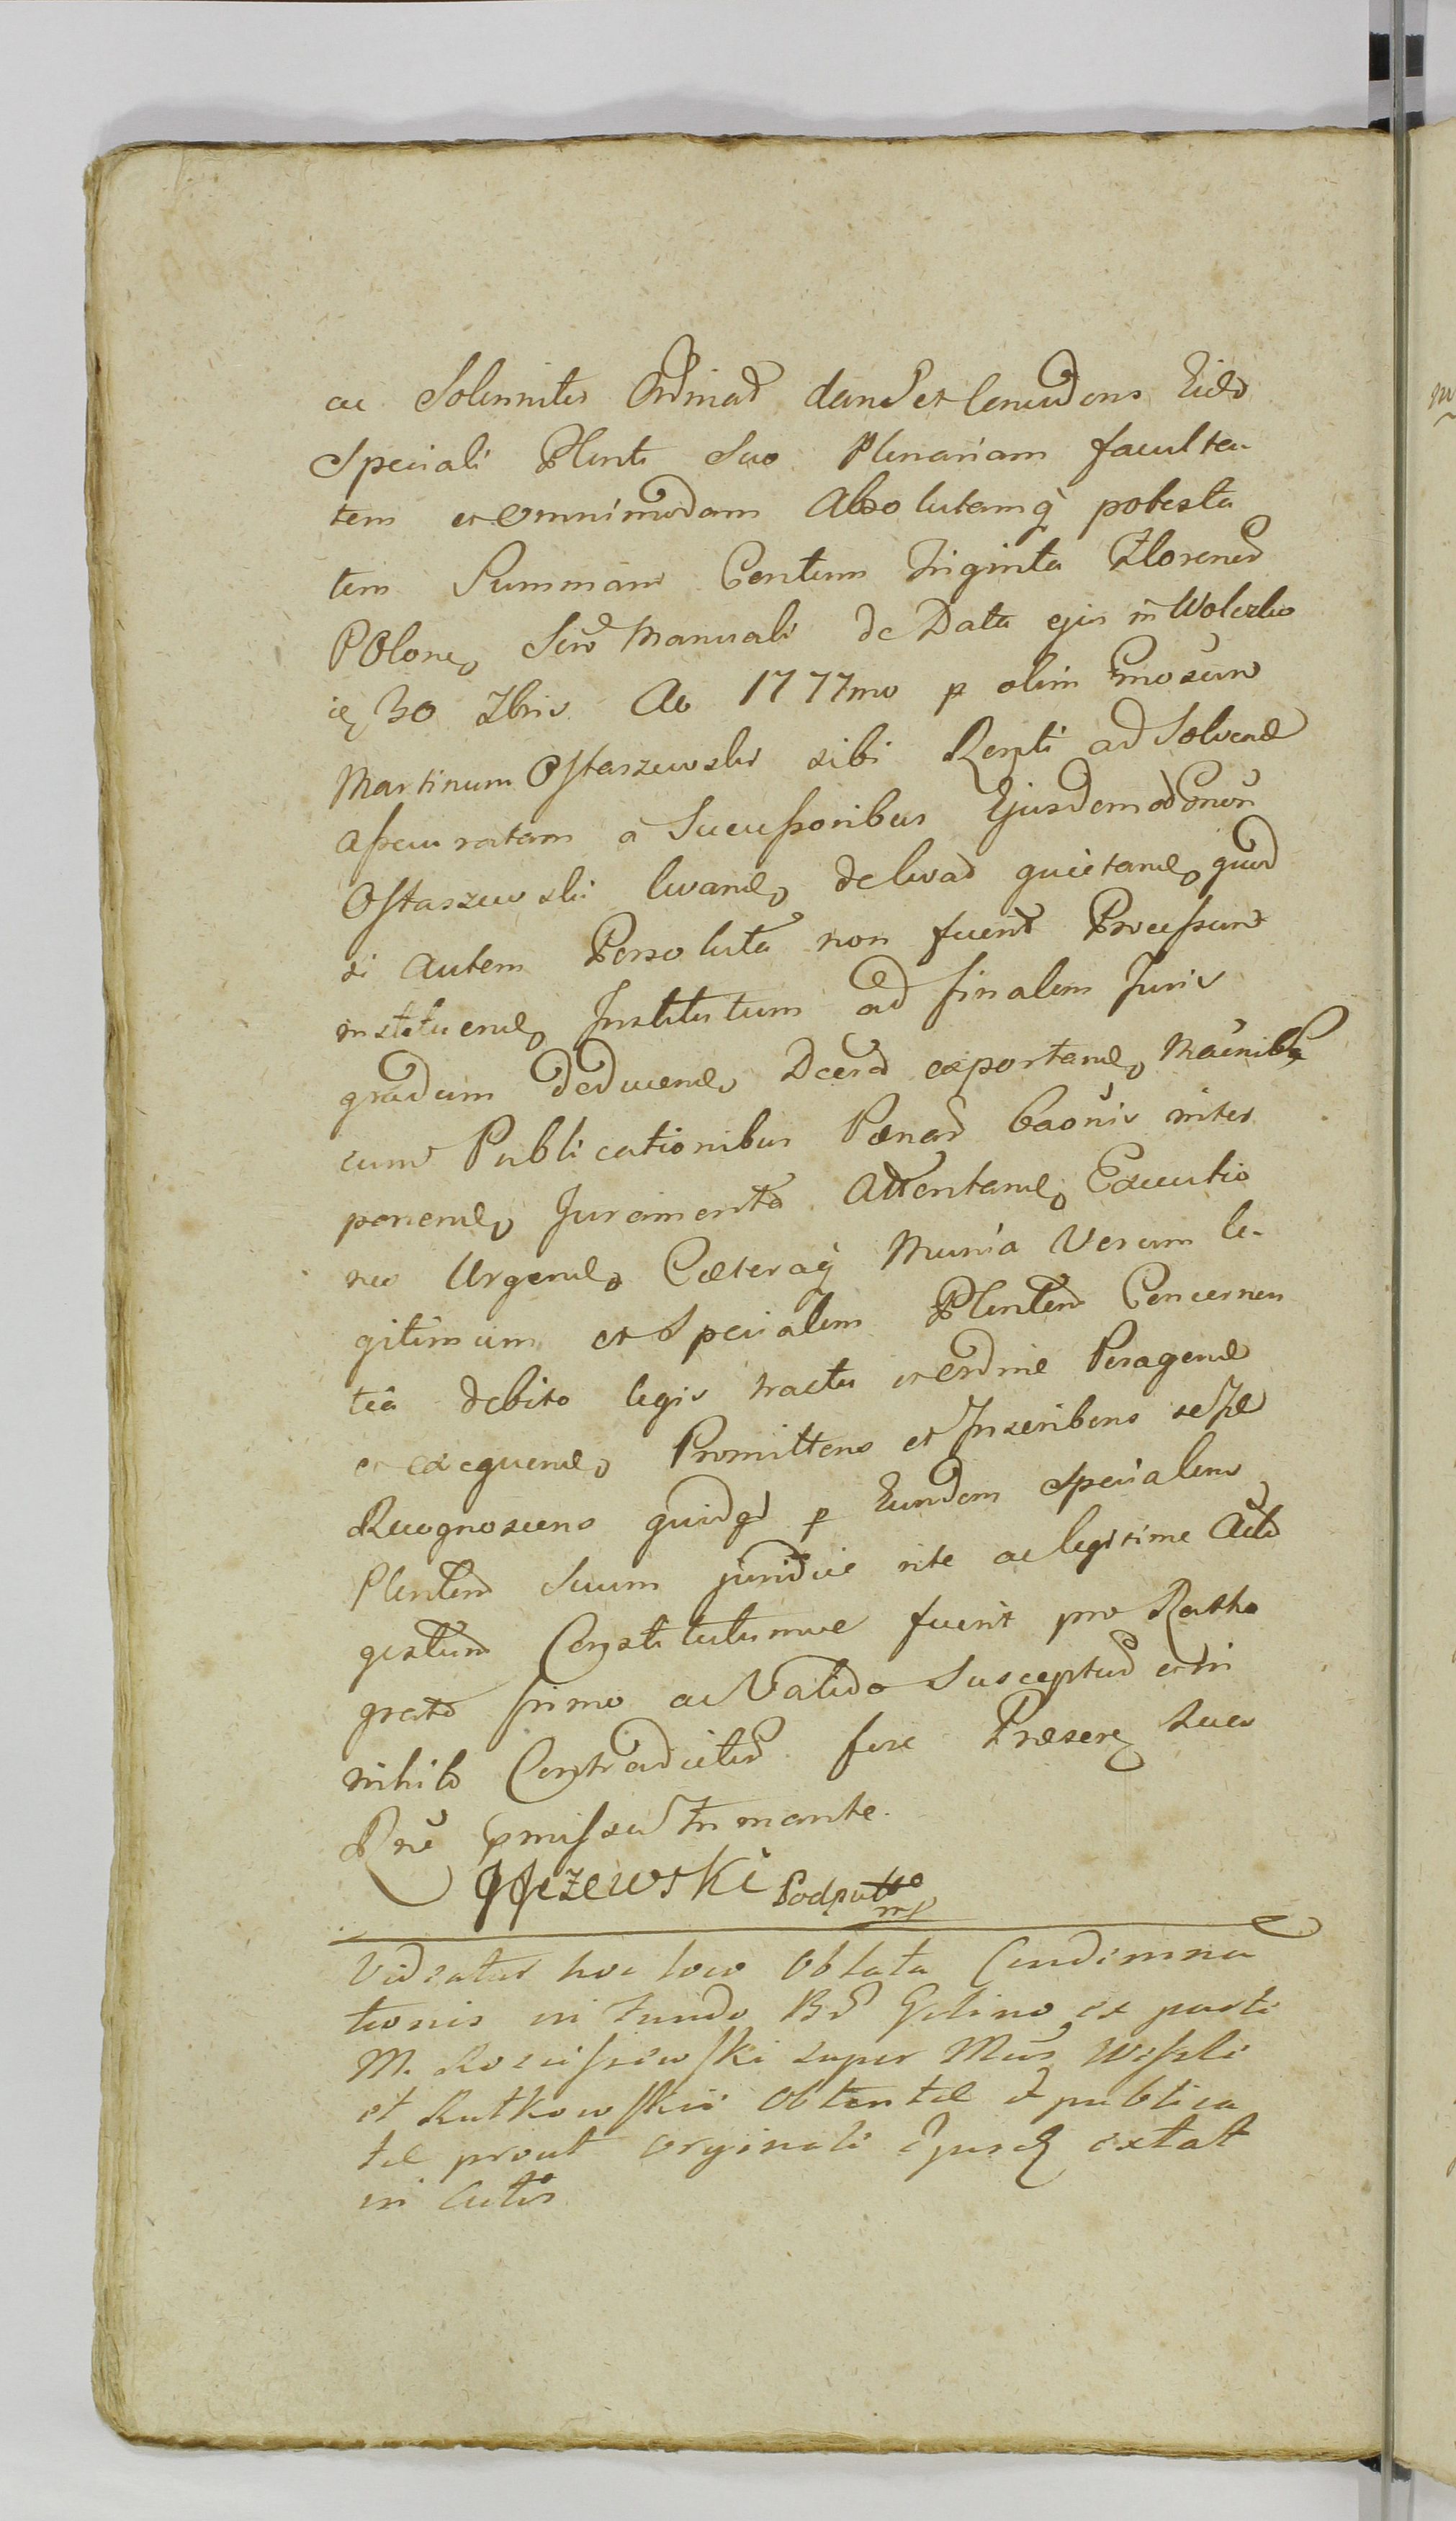 ac Solenniter Ordinad dand et concedens Eidd
Speciali Plenti Suo Plenariam faculta-
tem et omnimodam Absolutamq potesta
tem Summam Centum Triginta Florend
Polone, Sivd Manuali de Data ejus in
30 Xbris Ao 1777mo p olim Gnosum
Martinum Ostaszewski sibi Rgnti ad Solvend
assecuratam a Successoribus Ejusdem olim Gnosi
Ostaszewski levand, de levad quietand, quod
si autem Persoluta non fuerit Processum
instituend, Institutum ad finalem Juris
gradum deducend, Dcerd exportand,
cum Publicationibus Pænad Caonis inter
ponend, Juramenta Attentand, Executio
nes Urgend, Cæteraq Munia Verum le-
gitimum et Specialem Plentem Concernen
tia debito legis tractu et ordine Peragend
et exequend, Promittens et Inscribens sese
Recognoscens quidqd p Eundem Specialem
Plentem Suum juridice rite ac legitime Actd
gestum Constitutumve fuerit pro Ratho
grato firmo ac Valido Susceptud et in
nihilo Contradictud fore Præsend suæ
Rnis pmissa Inmante.
Podpt
mp
Videatur hoc loco Oblata Condemna
tionis in Fundo Bd ex parte
M. super
et Rutkowskii Obtentæ et publica
tæ prout originali Ejusd extat
in Actis